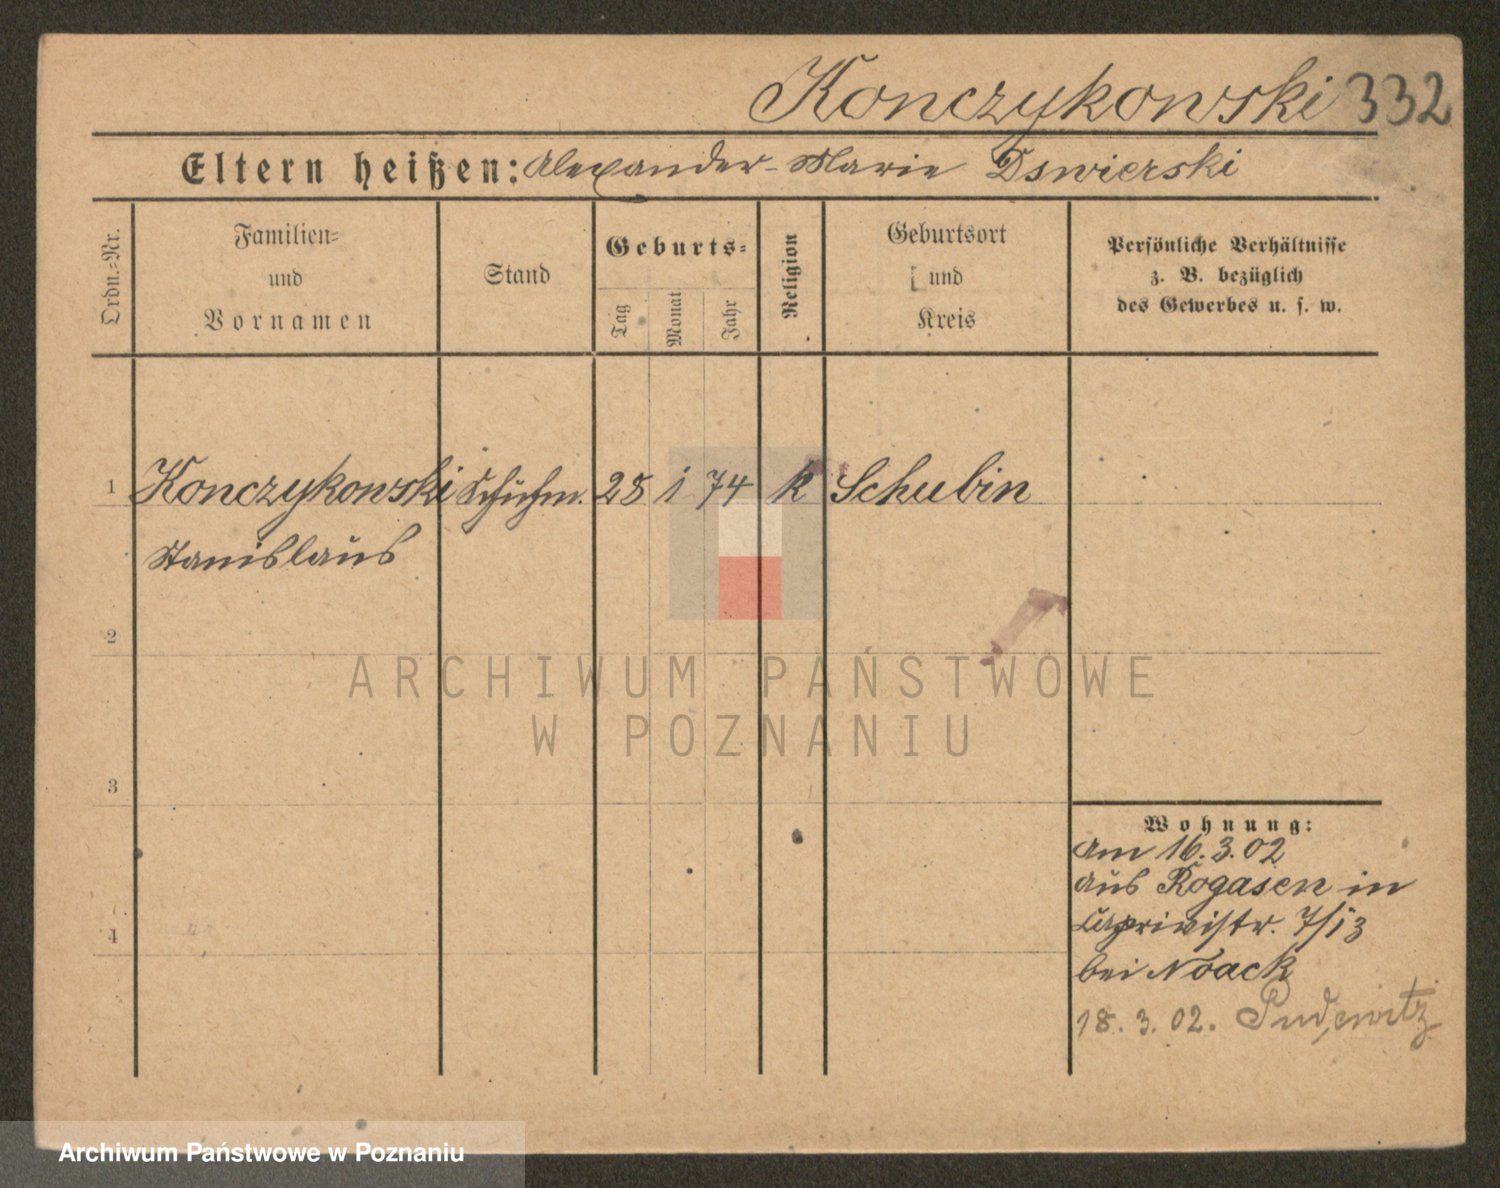 Konczykowski 332
Eltern heißen: Alexander - Marie Dswierski
Ordn.-Nr.
Familien-
und
Vornamen
Stand
Geburts-
Tag
Monat
Jahr
Religion
Geburtsort
und
Kreis
Persönliche Verhältnisse
z. B. bezüglich
des Gewerbes u. s. w.
1 Konczykowski Schuhm. 28 1 74 k Schubin
Stanislaus
2
3
4
Wohnung:
Am 16.3.02
aus Rogasen in
Caprivistr. 7/13
bei Noack
18.3.02. Pudewitz
ARCHIWUM PAŃSTWOWE
W POZNANIU
Archiwum Państwowe w Poznaniu